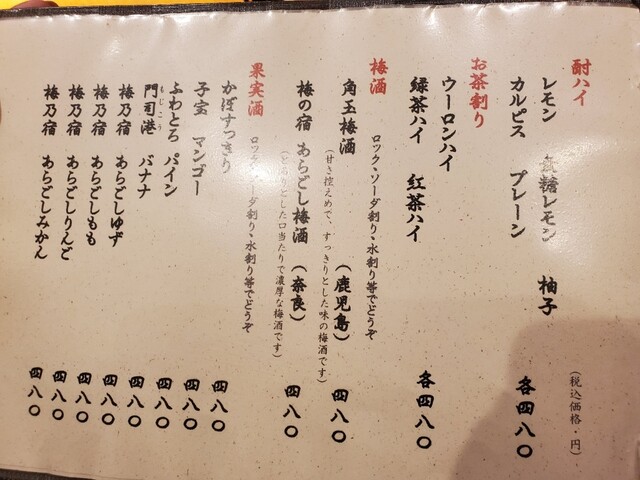 酎ハイ
（税込価格・円）
レモン 無糖レモン 柚子
カルピス プレーン 各四八〇
お茶割り
ウーロンハイ
緑茶ハイ 紅茶ハイ 各四八〇
梅酒 ロック、ソーダ割り、水割り等でどうぞ
角玉梅酒 （鹿児島） 四八〇
（甘さ控えめで、すっきりとした味の梅酒です）
梅の宿 あらごし梅酒 （奈良） 四八〇
（とろりとした口当たりで濃厚な梅酒です）
果実酒 ロック、ソーダ割り、水割り等でどうぞ
かぼすっきり 四八〇
子宝 マンゴー 四八〇
ふわとろ パイン 四八〇
門司港 バナナ 四八〇
もじこう
梅乃宿 あらごしゆず 四八〇
梅乃宿 あらごしもも 四八〇
梅乃宿 あらごしりんご 四八〇
梅乃宿 あらごしみかん 四八〇